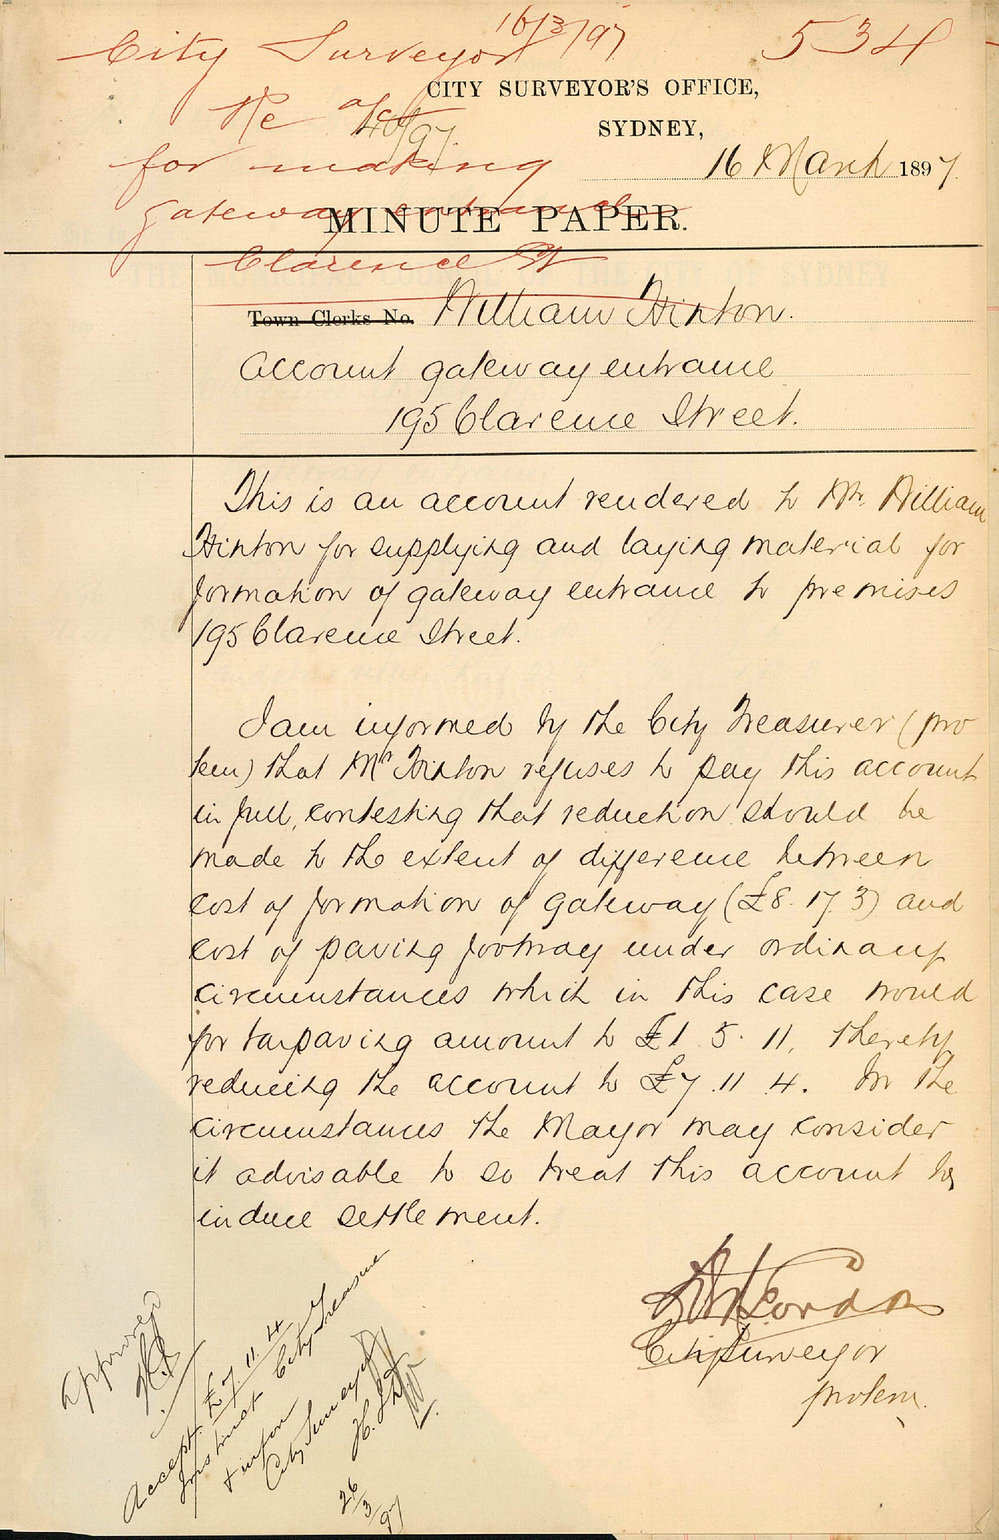 City Surveyor 16/3/97
534
CITY SURVEYOR'S OFFICE,
Re a/c
40/97.
SYDNEY,
for making
16 March 1897.
gateway entrance
MINUTE PAPER.
Clarence St
Town Clerks No. William Hinton.
Account gateway entrance
195 Clarence Street.
This is an account rendered to Mr. William
Hinton for supplying and laying material for
formation of gateway entrance to premises
195 Clarence Street.
I am informed by the City Treasurer (pro
tem) that Mr Hinton refuses to pay this account
in full, contesting that reduction should be
made to the extent of difference between
cost of formation of gateway (£8. 17. 3) and
cost of paving footway under ordinary
circumstances which in this case would
for tarpaving amount to £1. 5. 11, thereby
reducing the account to £7. 11. 4. In the
circumstances the Mayor may consider
it advisable to so treat this account to
induce settlement.
Gordon
City Surveyor
protem.
Approved
Accept £7. 11. 4
Instruct City Treasurer
& inform
City Surveyor
26/3/97